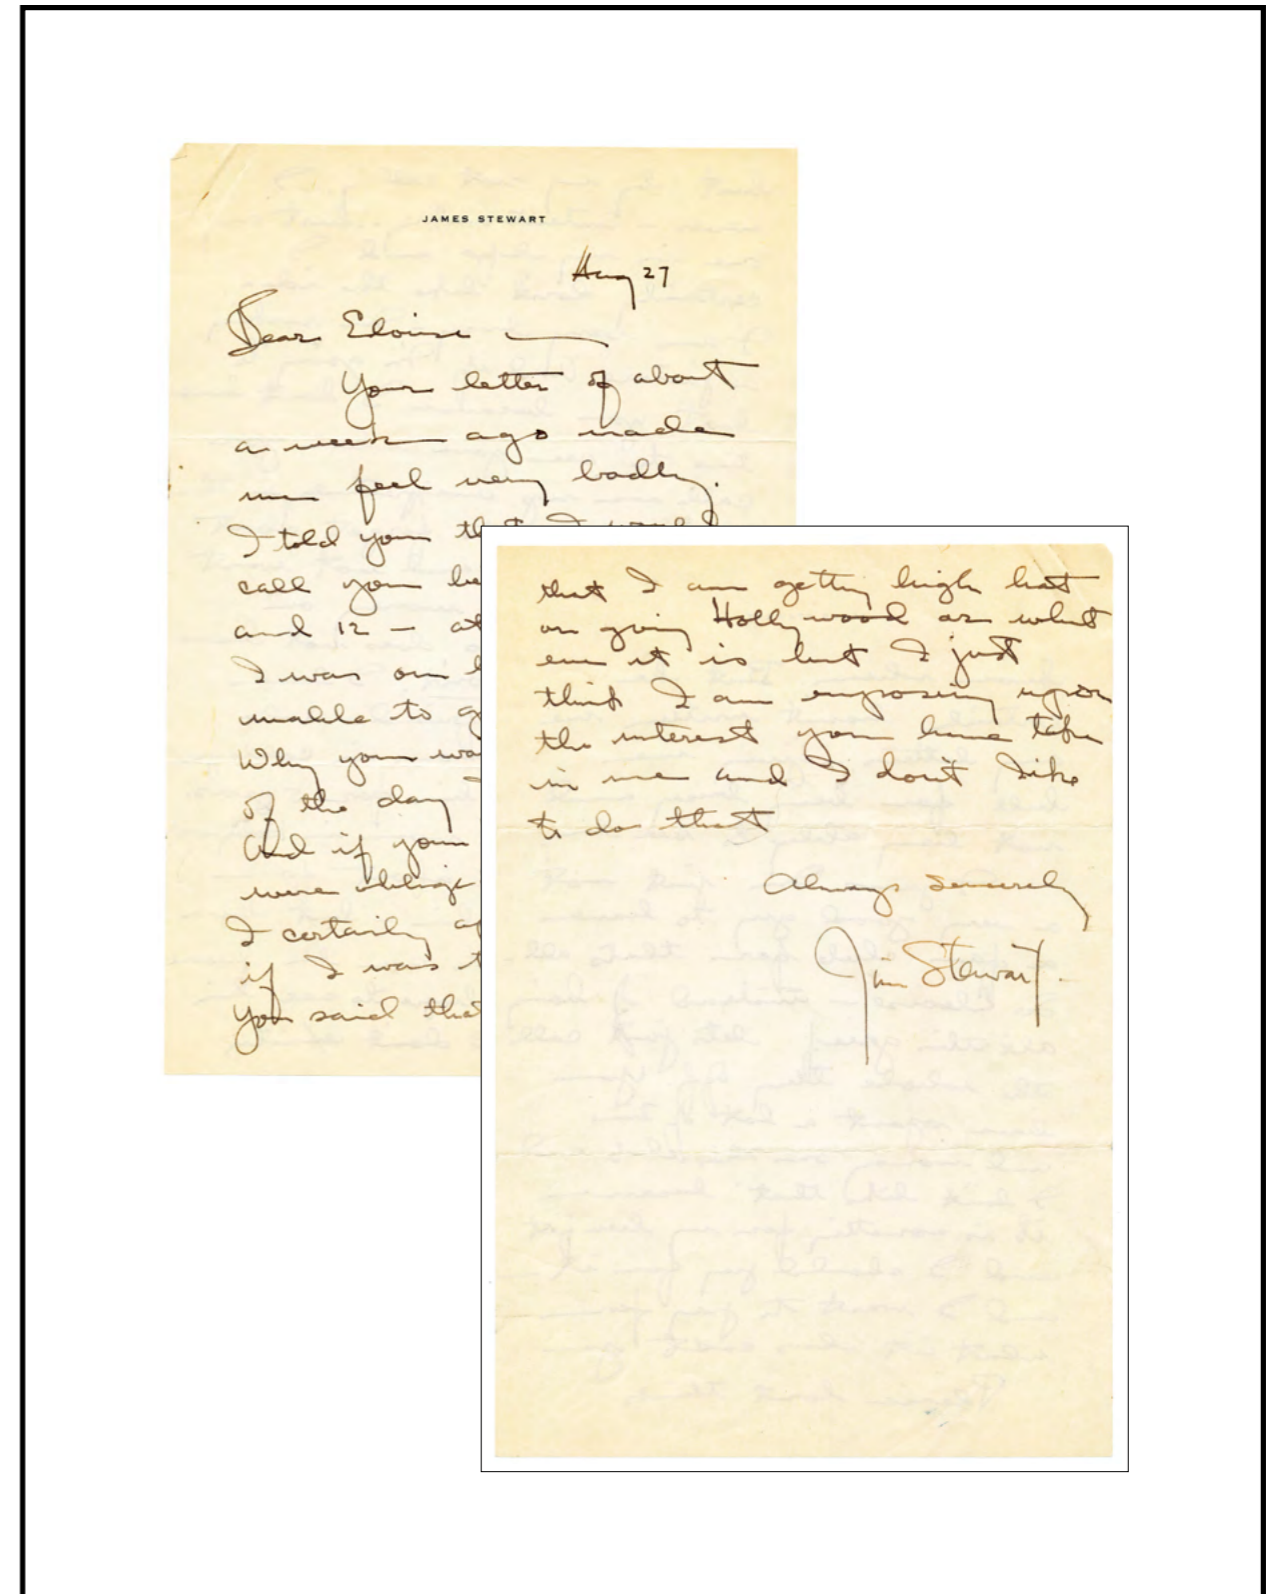 JAMES STEWART
Aug 27
Dear Eloise —
Your letter of about
a week ago made
me feel very badly.
I told you that I would
call you be
and 12 — at
I was on l
unable to g
Why you wa
of the day
And if you
were
I certainly ap
if I was t
You said that
that I am getting high hat
or going Hollywood or what
ever it is but I just
think I am imposing upon
the interest you have take
in me and I don't like
to do that
Always sincerely
Jim Stewart.